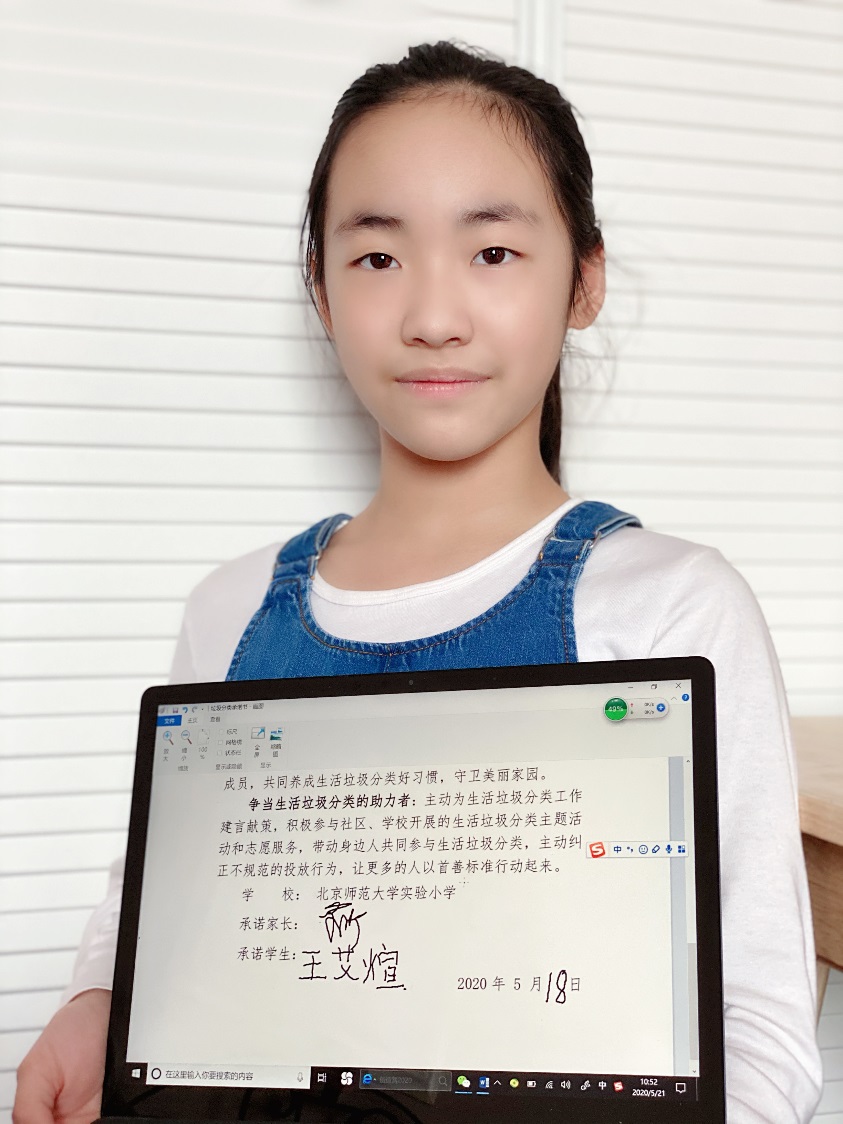 垃圾分类承诺书 - 画图
文件 主页 查看
放大 缩小 100% 标尺 网格线 状态栏 全屏 缩略图
缩放 显示或隐藏 显示
49%
成员，共同养成生活垃圾分类好习惯，守卫美丽家园。
争当生活垃圾分类的助力者：主动为生活垃圾分类工作
建言献策，积极参与社区、学校开展的生活垃圾分类主题活
动和志愿服务，带动身边人共同参与生活垃圾分类，主动纠
正不规范的投放行为，让更多的人以首善标准行动起来。
中
学 校： 北京师范大学实验小学
承诺家长：
承诺学生：王艾煊
2020 年 5 月 18 日
在这里输入你要搜索的内容
中
10:52
2020/5/21